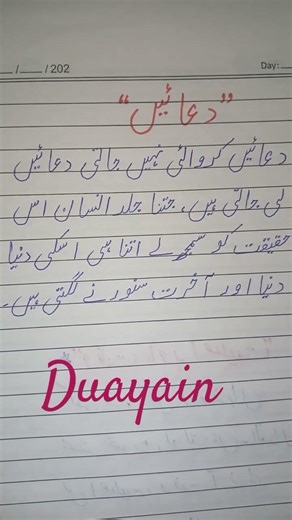 __/__/202 Day:
”دعائیں“
دعائیں کروائی نہیں جاتی دعائیں
لی جاتی ہیں، جتنا جلد انسان اس
حقیقت کو سمجھ لے اتنا ہی اسکی دنیا
دنیا اور آخرت سنورنے لگتی ہیں۔
Duayain